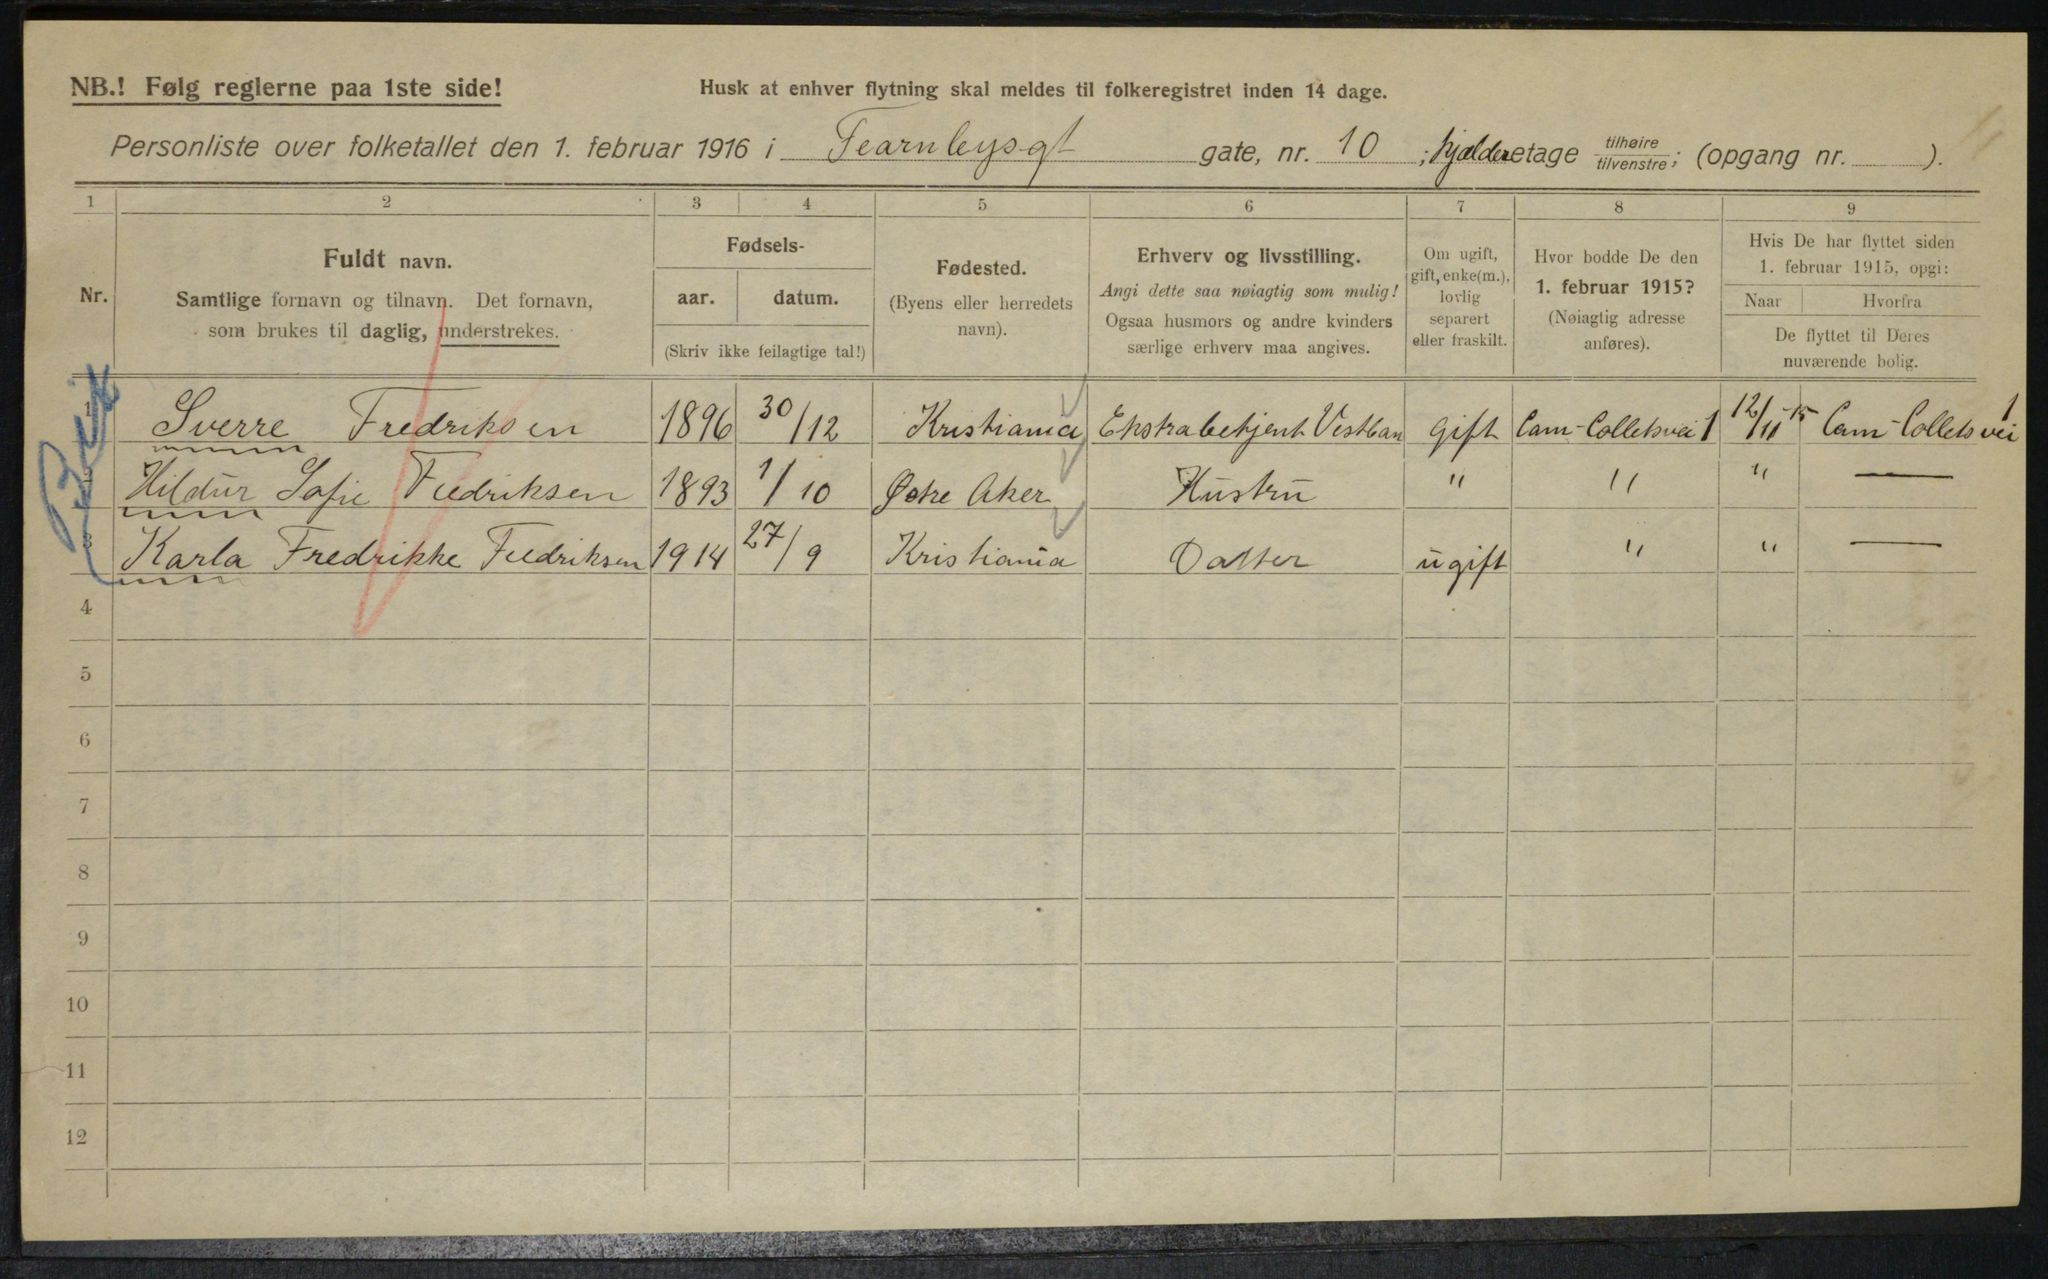 NB.! Følg reglerne paa 1ste side!
Husk at enhver flytning skal meldes til folkeregistret inden 14 dage.
Personliste over folketallet den 1. februar 1916 i Fearnleysgt gate, nr. 10 ; kjælder etage tilhøire / tilvenstre ; (opgang nr. ).
1 2 3 4 5 6 7 8 9
Nr.
Fuldt navn.
Samtlige fornavn og tilnavn. Det fornavn,
som brukes til daglig, understrekes.
Fødsels-
aar. datum.
(Skriv ikke feilagtige tal!)
Fødested.
(Byens eller herredets
navn).
Erhverv og livsstilling.
Angi dette saa nøiagtig som mulig!
Ogsaa husmors og andre kvinders
særlige erhverv maa angives.
Om ugift,
gift, enke(m.),
lovlig
separert
eller fraskilt.
Hvor bodde De den
1. februar 1915?
(Nøiagtig adresse
anføres).
Hvis De har flyttet siden
1. februar 1915, opgi:
Naar Hvorfra
De flyttet til Deres
nuværende bolig.
1 Sverre Fredriksen 1896 30/12 Kristiania Ekstrabetjent Vestban gift Cam-Colletsvei 1 12/11-15 Cam-Colletsvei 1
2 Hildur Sofie Fredriksen 1893 1/10 Østre Aker Hustru " " " —
3 Karla Fredrikke Fredriksen 1914 27/9 Kristiania Datter ugift " " —
4
5
6
7
8
9
10
11
12